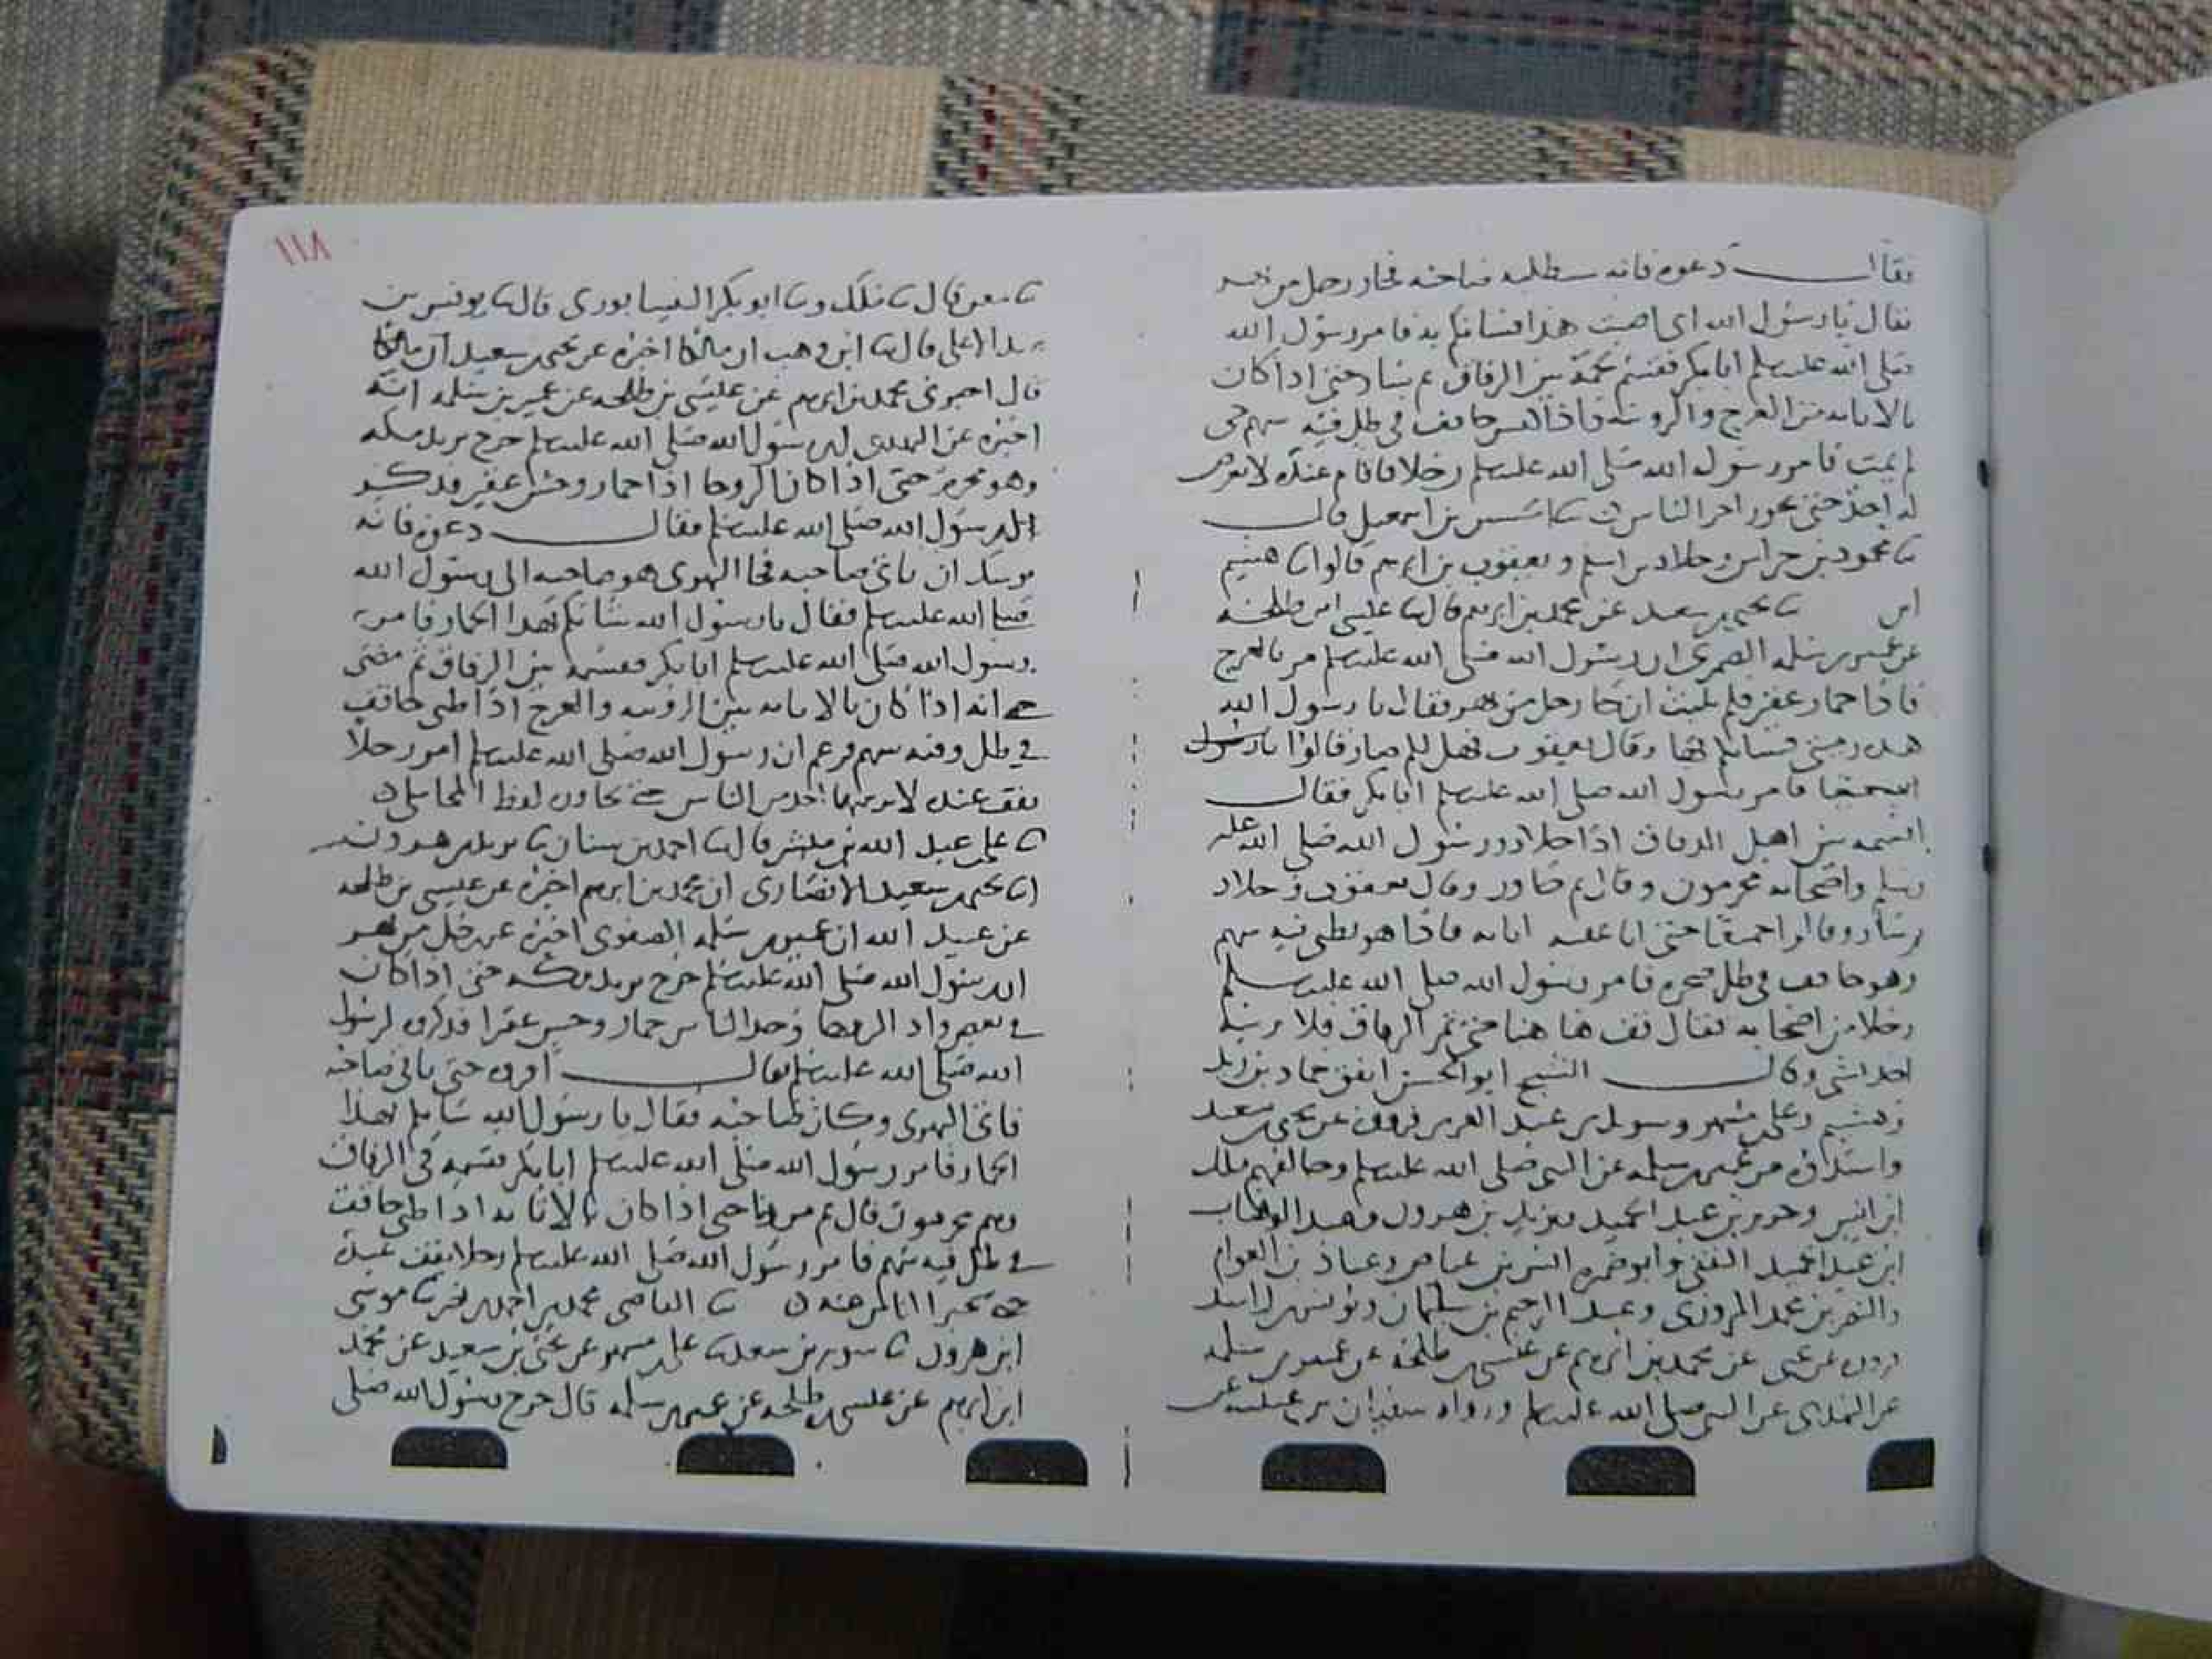 فقال دعوه فانه سيطلبه صاحبه فجا رجل من بهز
فقال يا رسول الله اني اصبت هذا فشانكم به فامر رسول الله
صلى الله عليه وسلم ابا بكر فقسم لحمه بين الرفاق ثم سار حتى اذا كان
بالاثايه بين العرج والرويثه فاذا حاقف في ظل فيه سهم حي
لم يمت فامر رسول الله صلى الله عليه وسلم رجلا فاقام عنده لا يعرض
له احد حتى يجوز اخر الناس بن اسمعيل قال
نا محمود بن خراش وخلاد بن اسلم ويعقوب بن ابرهيم قالوا نا هشيم
انا نا يحيى بن سعيد عن محمد بن ابرهيم قال نا عيسى بن طلحه
عن عمير بن سلمه الضمري ان رسول الله صلى الله عليه وسلم مر بالعرج
فاذا حمار عقير فلم يلبث ان جا رجل من بهز فقال يا رسول الله
هذه رميتي فشانكم بها وقال يعقوب قالوا يا رسول
فامر رسول الله صلى الله عليه وسلم ابا بكر فقال
اقسمه بين اهل الرفاق ورسول الله صلى الله عليه
وسلم واصحابه محرمون وقال ثم جاوز وقال يعقوب وخلاد
ثم سار وقالوا جميعا حتى اتا عقبه اثايه فاذا هو بظبي فيه سهم
وهو حاقف في ظل صخره فامر رسول الله صلى الله عليه وسلم
رجلا من اصحابه فقال قف ها هنا حتى تمر الرفاق فلا يرميه
احد بشي وقال الشيخ ابو الحسن اتفق حماد بن زيد
وهشيم وعلي بن مسهر عن يحيى بن سعيد
عن عمير بن سلمه عن النبي صلى الله عليه وسلم وخالفهم ملك
ابن انس وجرير بن عبد الحميد ويزيد بن هرون وعبد الوهاب
ابن عبد المجيد الثقفي وابو ضمره انس بن عياض وعباد بن العوام
والنضر بن محمد المروزي وعبد الرحيم بن سليمان ويونس بن راشد
رووه عن يحيى عن محمد بن ابرهيم عن عيسى بن طلحه عن عمير بن سلمه
عن البهزي عن النبي صلى الله عليه وسلم ورواه سفيان بن عيينه عن
١١٨
نا معن قال نا ملك ونا ابو بكر النيسابوري قال نا يونس بن
عبد الاعلى قال نا ابن وهب ان مالكا اخبره عن يحيى بن سعيد ان مالكا
قال اخبرني محمد بن ابرهيم عن عيسى بن طلحه عن عمير بن سلمه انه
اخبره عن البهزي ان رسول الله صلى الله عليه وسلم خرج يريد مكه
وهو محرم حتى اذا كان بالروحا اذا حمار وحش عقير فذكر
لرسول الله صلى الله عليه وسلم فقال دعوه فانه
يوشك ان ياتي صاحبه فجا البهزي وهو صاحبه الى رسول الله
صلى الله عليه وسلم فقال يا رسول الله شانكم بهذا الحمار فامر
رسول الله صلى الله عليه وسلم ابا بكر فقسمه بين الرفاق ثم مضى
حتى انه اذا كان بالاثايه بين الرويثه والعرج اذا ظبي حاقف
في ظل وفيه سهم فزعم ان رسول الله صلى الله عليه وسلم امر رجلا
يقف عنده لا يريبه احد من الناس حتى يجاوزه لفظ المحاملي
نا علي بن عبد الله بن مبشر قال نا احمد بن سنان نا يزيد بن هرون
انا يحيى بن سعيد الانصاري ان محمد بن ابرهيم اخبره عن عيسى بن طلحه
عن عبيد الله ان عمير بن سلمه الضمري اخبره عن رجل من بهز
ان رسول الله صلى الله عليه وسلم خرج يريد مكه حتى اذا كان
في بعض واد الروحا وجد الناس حمار وحش عقيرا فذكروه لرسول
الله صلى الله عليه وسلم فقال اقروه حتى ياتي صاحبه
فاتى البهزي وكان صاحبه فقال يا رسول الله شانكم بهذا
الحمار فامر رسول الله صلى الله عليه وسلم ابا بكر فقسمه في الرفاق
وهم محرمون قال ثم مررنا حتى اذا كان بالاثايه اذا ظبي حاقف
في ظل فيه سهم فامر رسول الله صلى الله عليه وسلم رجلا يقف عنده
حتى يجيز الناس عنه نا القاضي محمد بن احمد بن نصر نا موسى
ابن هرون نا سويد بن سعيد نا علي بن مسهر عن يحيى بن سعيد عن محمد
ابن ابرهيم عن عيسى بن طلحه عن عمير بن سلمه قال خرج رسول الله صلى